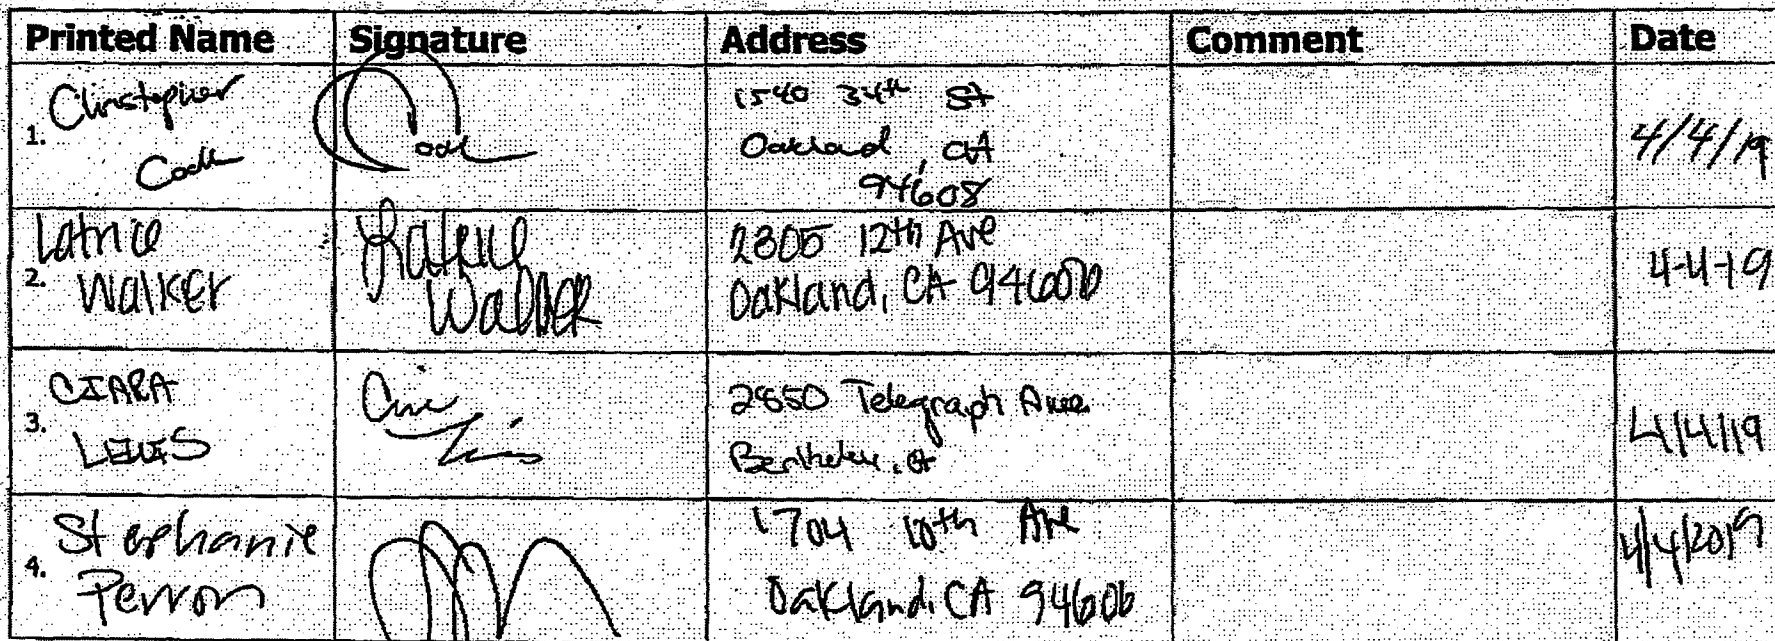 Printed Name Signature Address Comment Date
1. Christopher
Cook
1540 34th St
Oakland, CA
94608
4/4/19
2. Latrice
Walker
Latrice
Walker
2305 12th Ave
Oakland, CA 94606
4-4-19
3. CIARA
LEWIS
2850 Telegraph Ave.
Berkeley, CA
4/4/19
4. Stephanie
Perron
1704 10th Ave
Oakland, CA 94606
4/4/2019